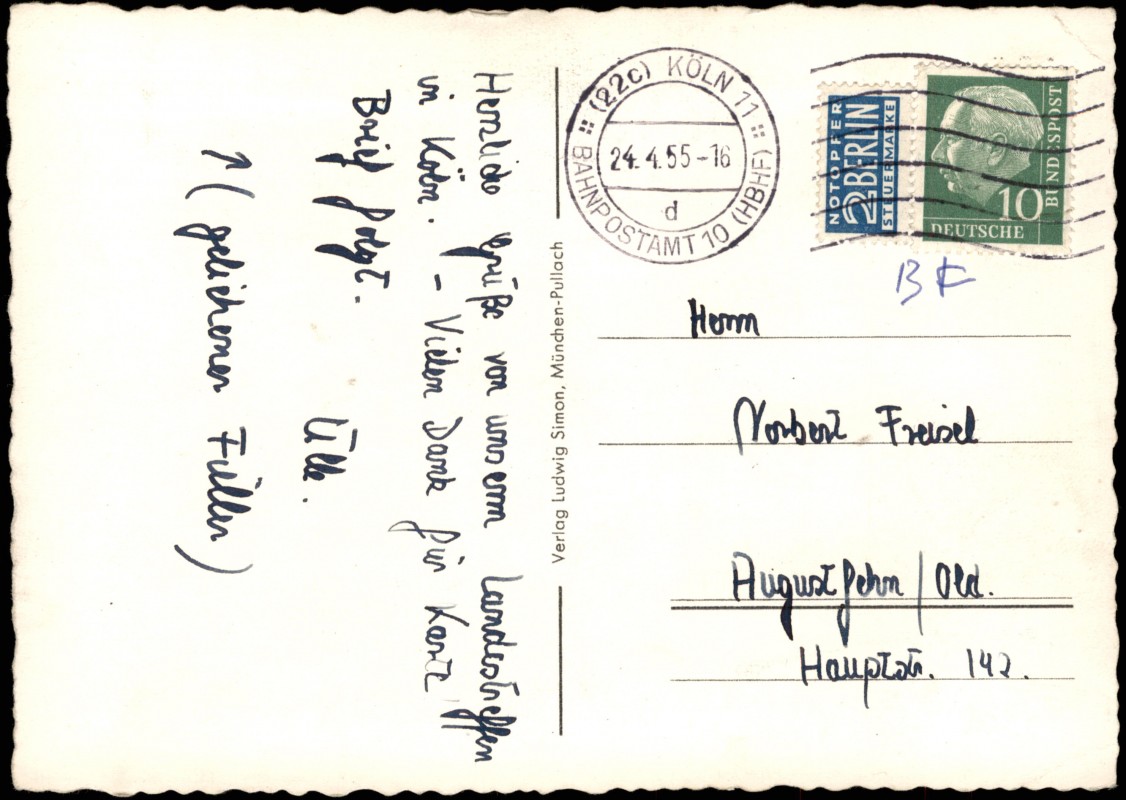 Herzliche Grüße von unserm Landestreffen
in Köln. - Vielen Dank für Karte!
Brief folgt.
Ulle.
↑ (geliehener Füller)
Verlag Ludwig Simon, München-Pullach
(22c) KÖLN 11
24.4.55-16
d
BAHNPOSTAMT 10 (HBHF)
NOTOPFER
2 BERLIN
STEUERMARKE
10
DEUTSCHE
BUNDESPOST
Herrn
Norbert Freisel
Augustfehn / Old.
Hauptstr. 142.